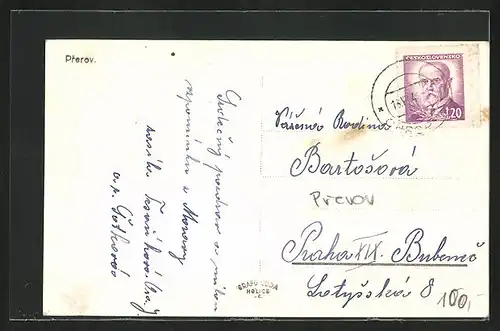 Přerov.
Srdečný pozdrav a milou
vzpomínku z Moravy
a p.
ČESKOSLOVENSKO
1.20
Vážená Rodina
Bartošová
Prerov
Praha XIX. Bubeneč
Lotyšská 8
100,-
GRAFO ČUDA
HOLICE